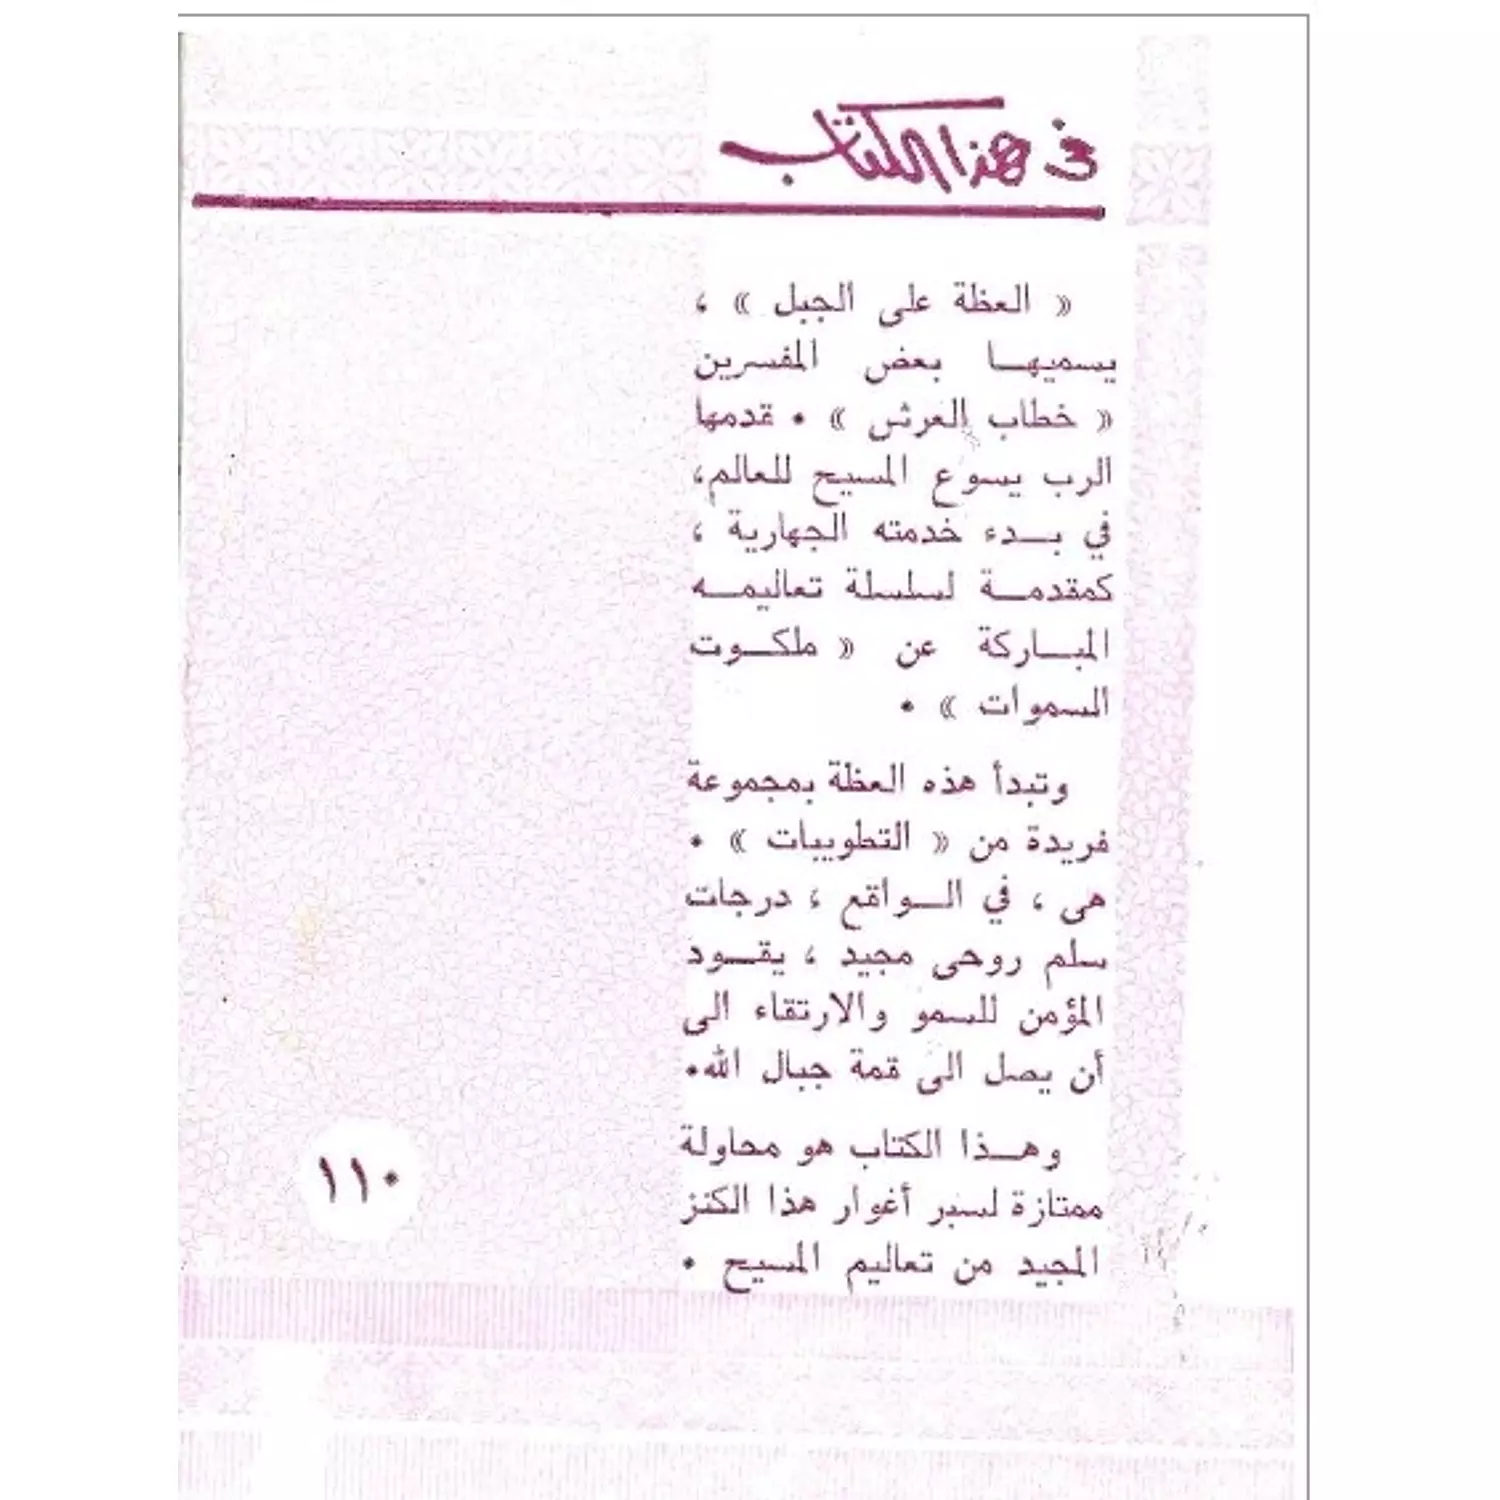 فى هذا الكتاب
« العظة على الجبل » ،
يسميهــا بعض المفسرين
« خطاب العرش » • قدمها
الرب يسوع المسيح للعالم،
في بــدء خدمته الجهارية ،
كمقدمــة لسلسلة تعاليمــه
المبــاركة عن « ملكــوت
السموات » •
وتبدأ هذه العظة بمجموعة
فريدة من « التطويبات » •
هى ، في الــواقع ، درجات
سلم روحى مجيد ، يقــود
المؤمن للسمو والارتقاء الى
أن يصل الى قمة جبال الله•
وهــذا الكتاب هو محاولة
ممتازة لسبر أغوار هذا الكنز
المجيد من تعاليم المسيح •
١١٠